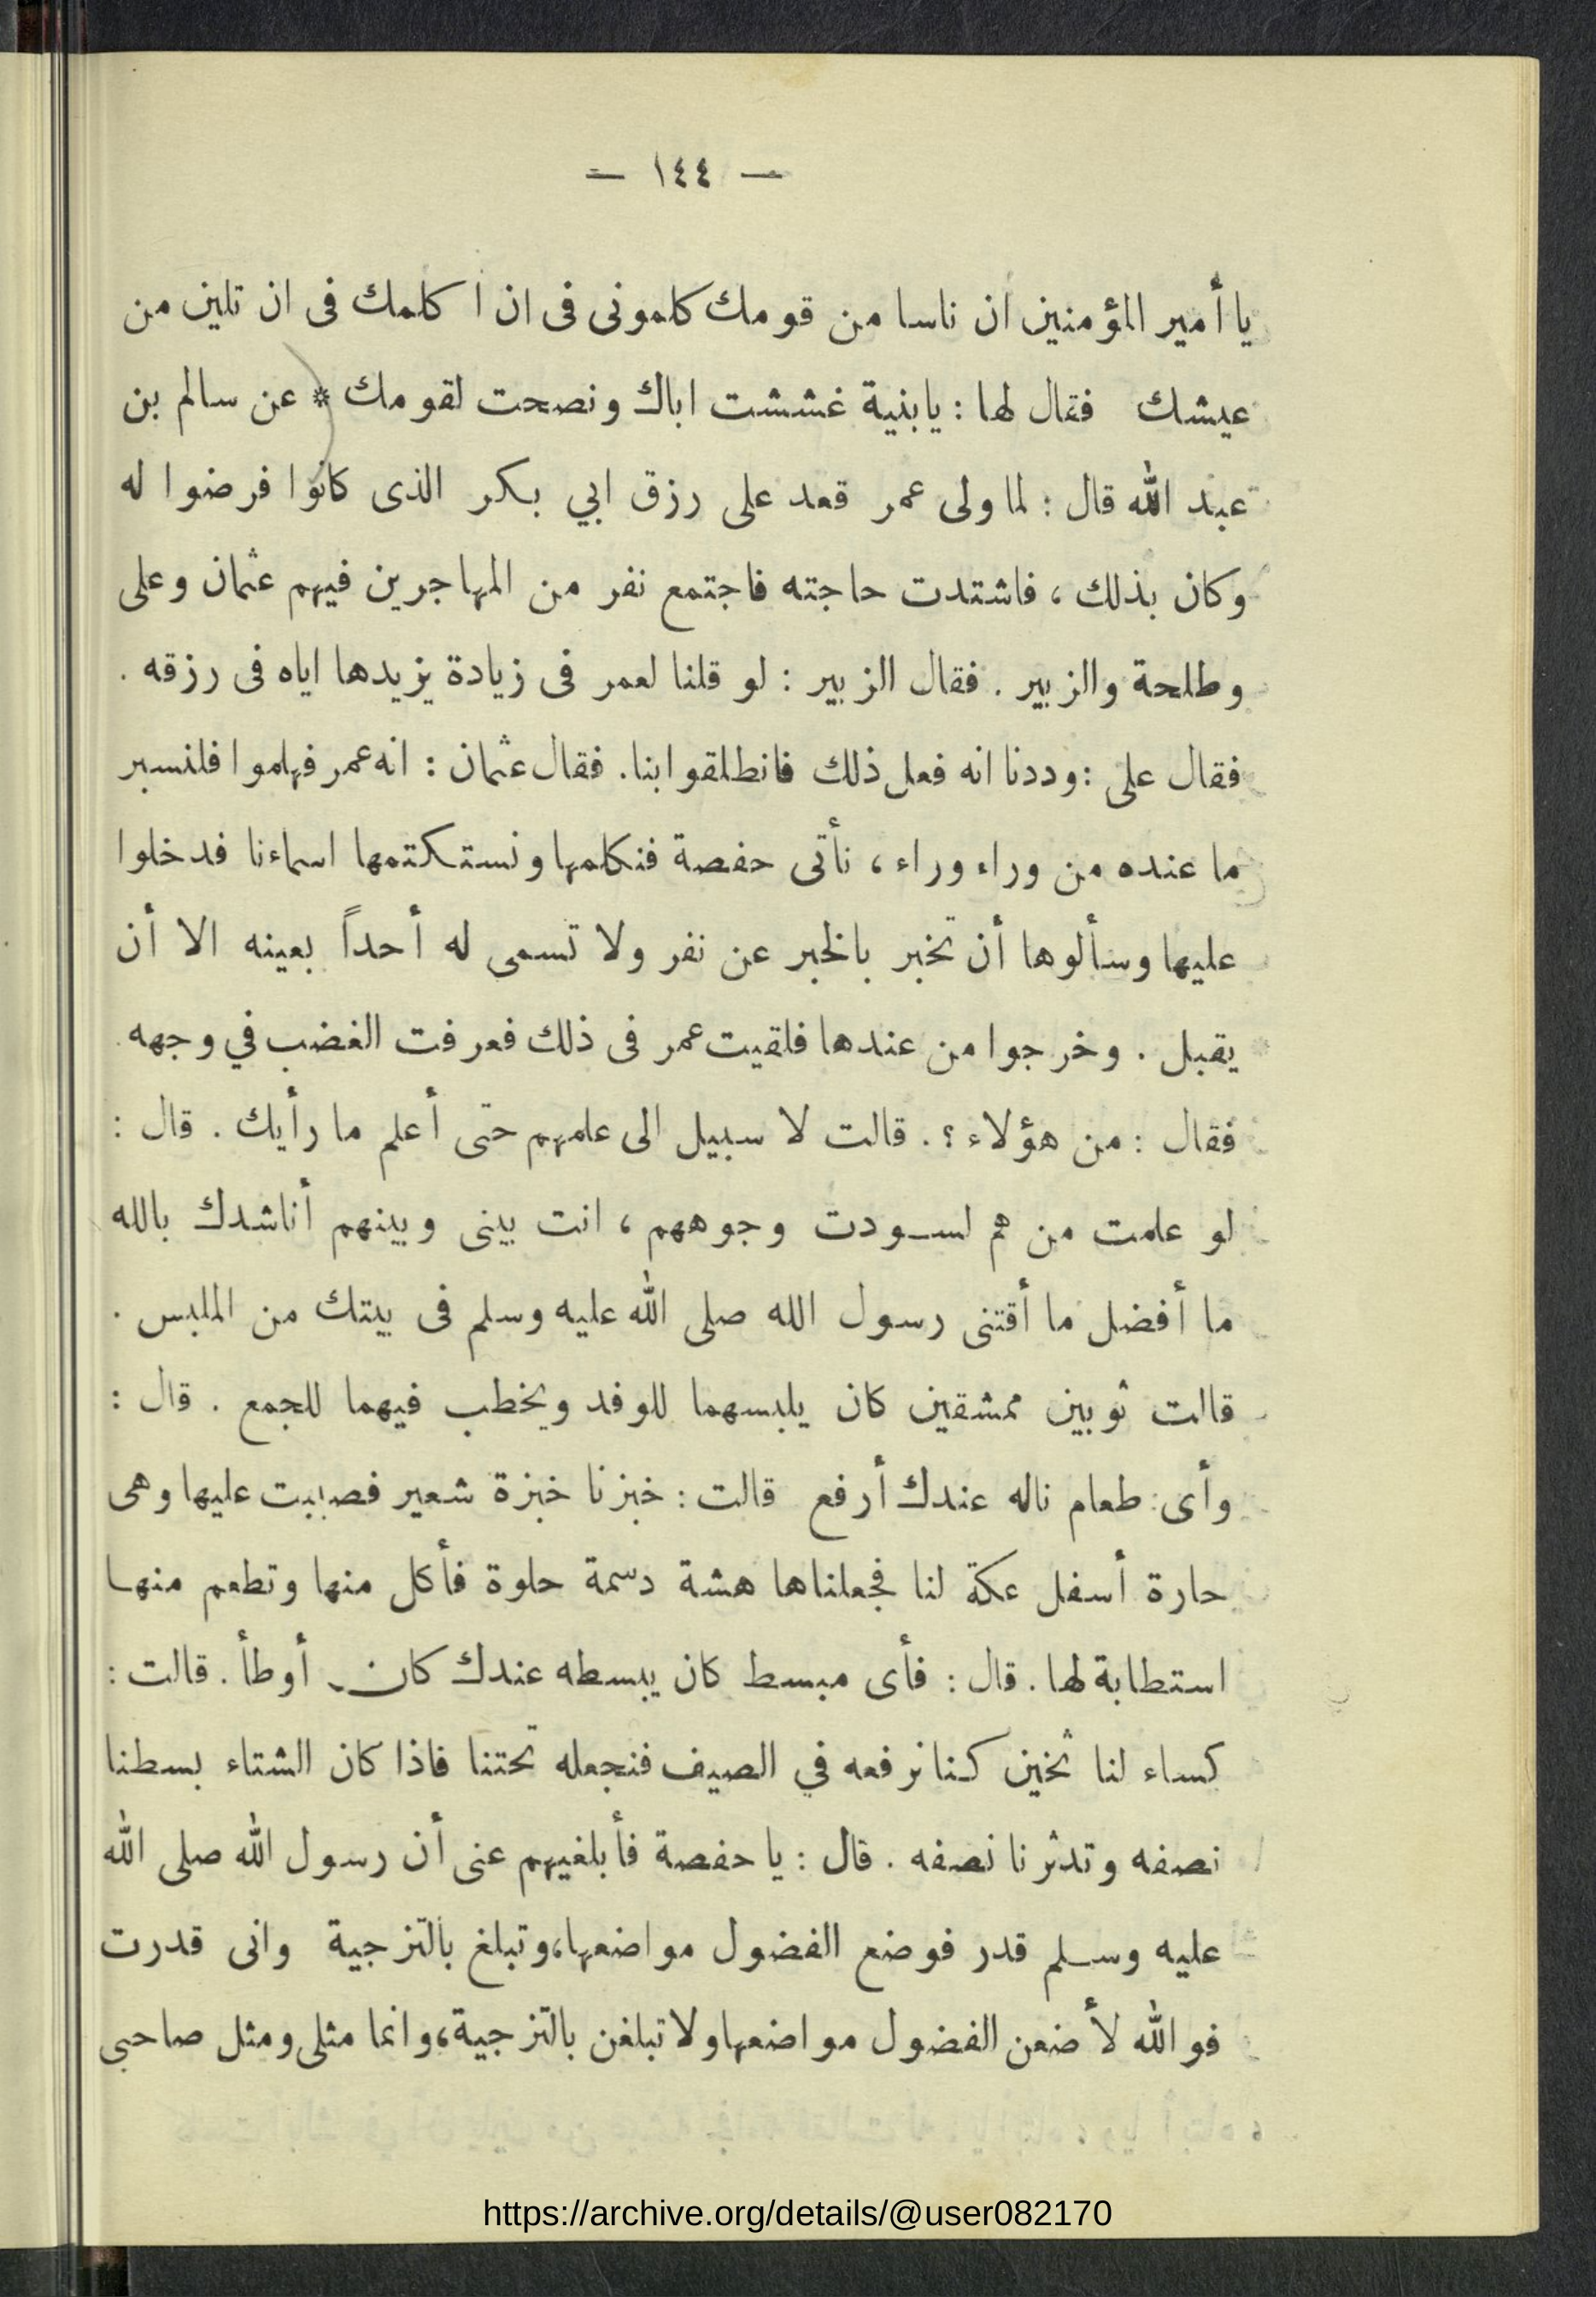 — ١٤٤ —
يا أمير المؤمنين ان ناسا من قومك كلمونى فى ان ا كلمك فى ان تلين من
عيشك فقال لها : يابنية غششت اباك ونصحت لقومك * عن سالم بن
عبد الله قال : لما ولى عمر قعد على رزق ابي بكر الذى كانوا فرضوا له
وكان بذلك ، فاشتدت حاجته فاجتمع نفر من المهاجرين فيهم عثمان وعلى
وطلحة والزبير . فقال الزبير : لو قلنا لعمر فى زيادة يزيدها اياه فى رزقه .
فقال على : وددنا انه فعل ذلك فانطلقوا بنا . فقال عثمان : انه عمر فهلموا فلنسبر
ما عنده من وراء وراء ، نأتى حفصة فنكلمها ونستكتمها اسماءنا فدخلوا
عليها وسألوها أن تخبر بالخبر عن نفر ولا تسمى له أحداً بعينه الا أن
يقبل . وخرجوا من عندها فلقيت عمر فى ذلك فعرفت الغضب في وجهه
فقال : من هؤلاء ؟ . قالت لا سبيل الى علمهم حتى أعلم ما رأيك . قال :
لو علمت من هم لسودت وجوههم ، انت بينى وبينهم أناشدك بالله
ما أفضل ما أقتنى رسول الله صلى الله عليه وسلم فى بيتك من الملبس .
قالت ثوبين ممشقين كان يلبسهما للوفد ويخطب فيهما للجمع . قال :
وأى طعام ناله عندك أرفع قالت : خبزنا خبزة شعير فصببت عليها وهى
حارة أسفل عكة لنا فجعلناها هشة دسمة حلوة فأكل منها وتطعم منها
استطابة لها . قال : فأى مبسط كان يبسطه عندك كان أوطأ . قالت :
كساء لنا ثخين كنا نرفعه في الصيف فنجعله تحتنا فاذا كان الشتاء بسطنا
نصفه وتدثرنا نصفه . قال : يا حفصة فأبلغيهم عنى أن رسول الله صلى الله
عليه وسلم قدر فوضع الفضول مواضعها، وتبلغ بالتزجية وانى قدرت
فوالله لأضعن الفضول مواضعها ولا تبلغن بالتزجية، وانما مثلى ومثل صاحبى
https://archive.org/details/@user082170